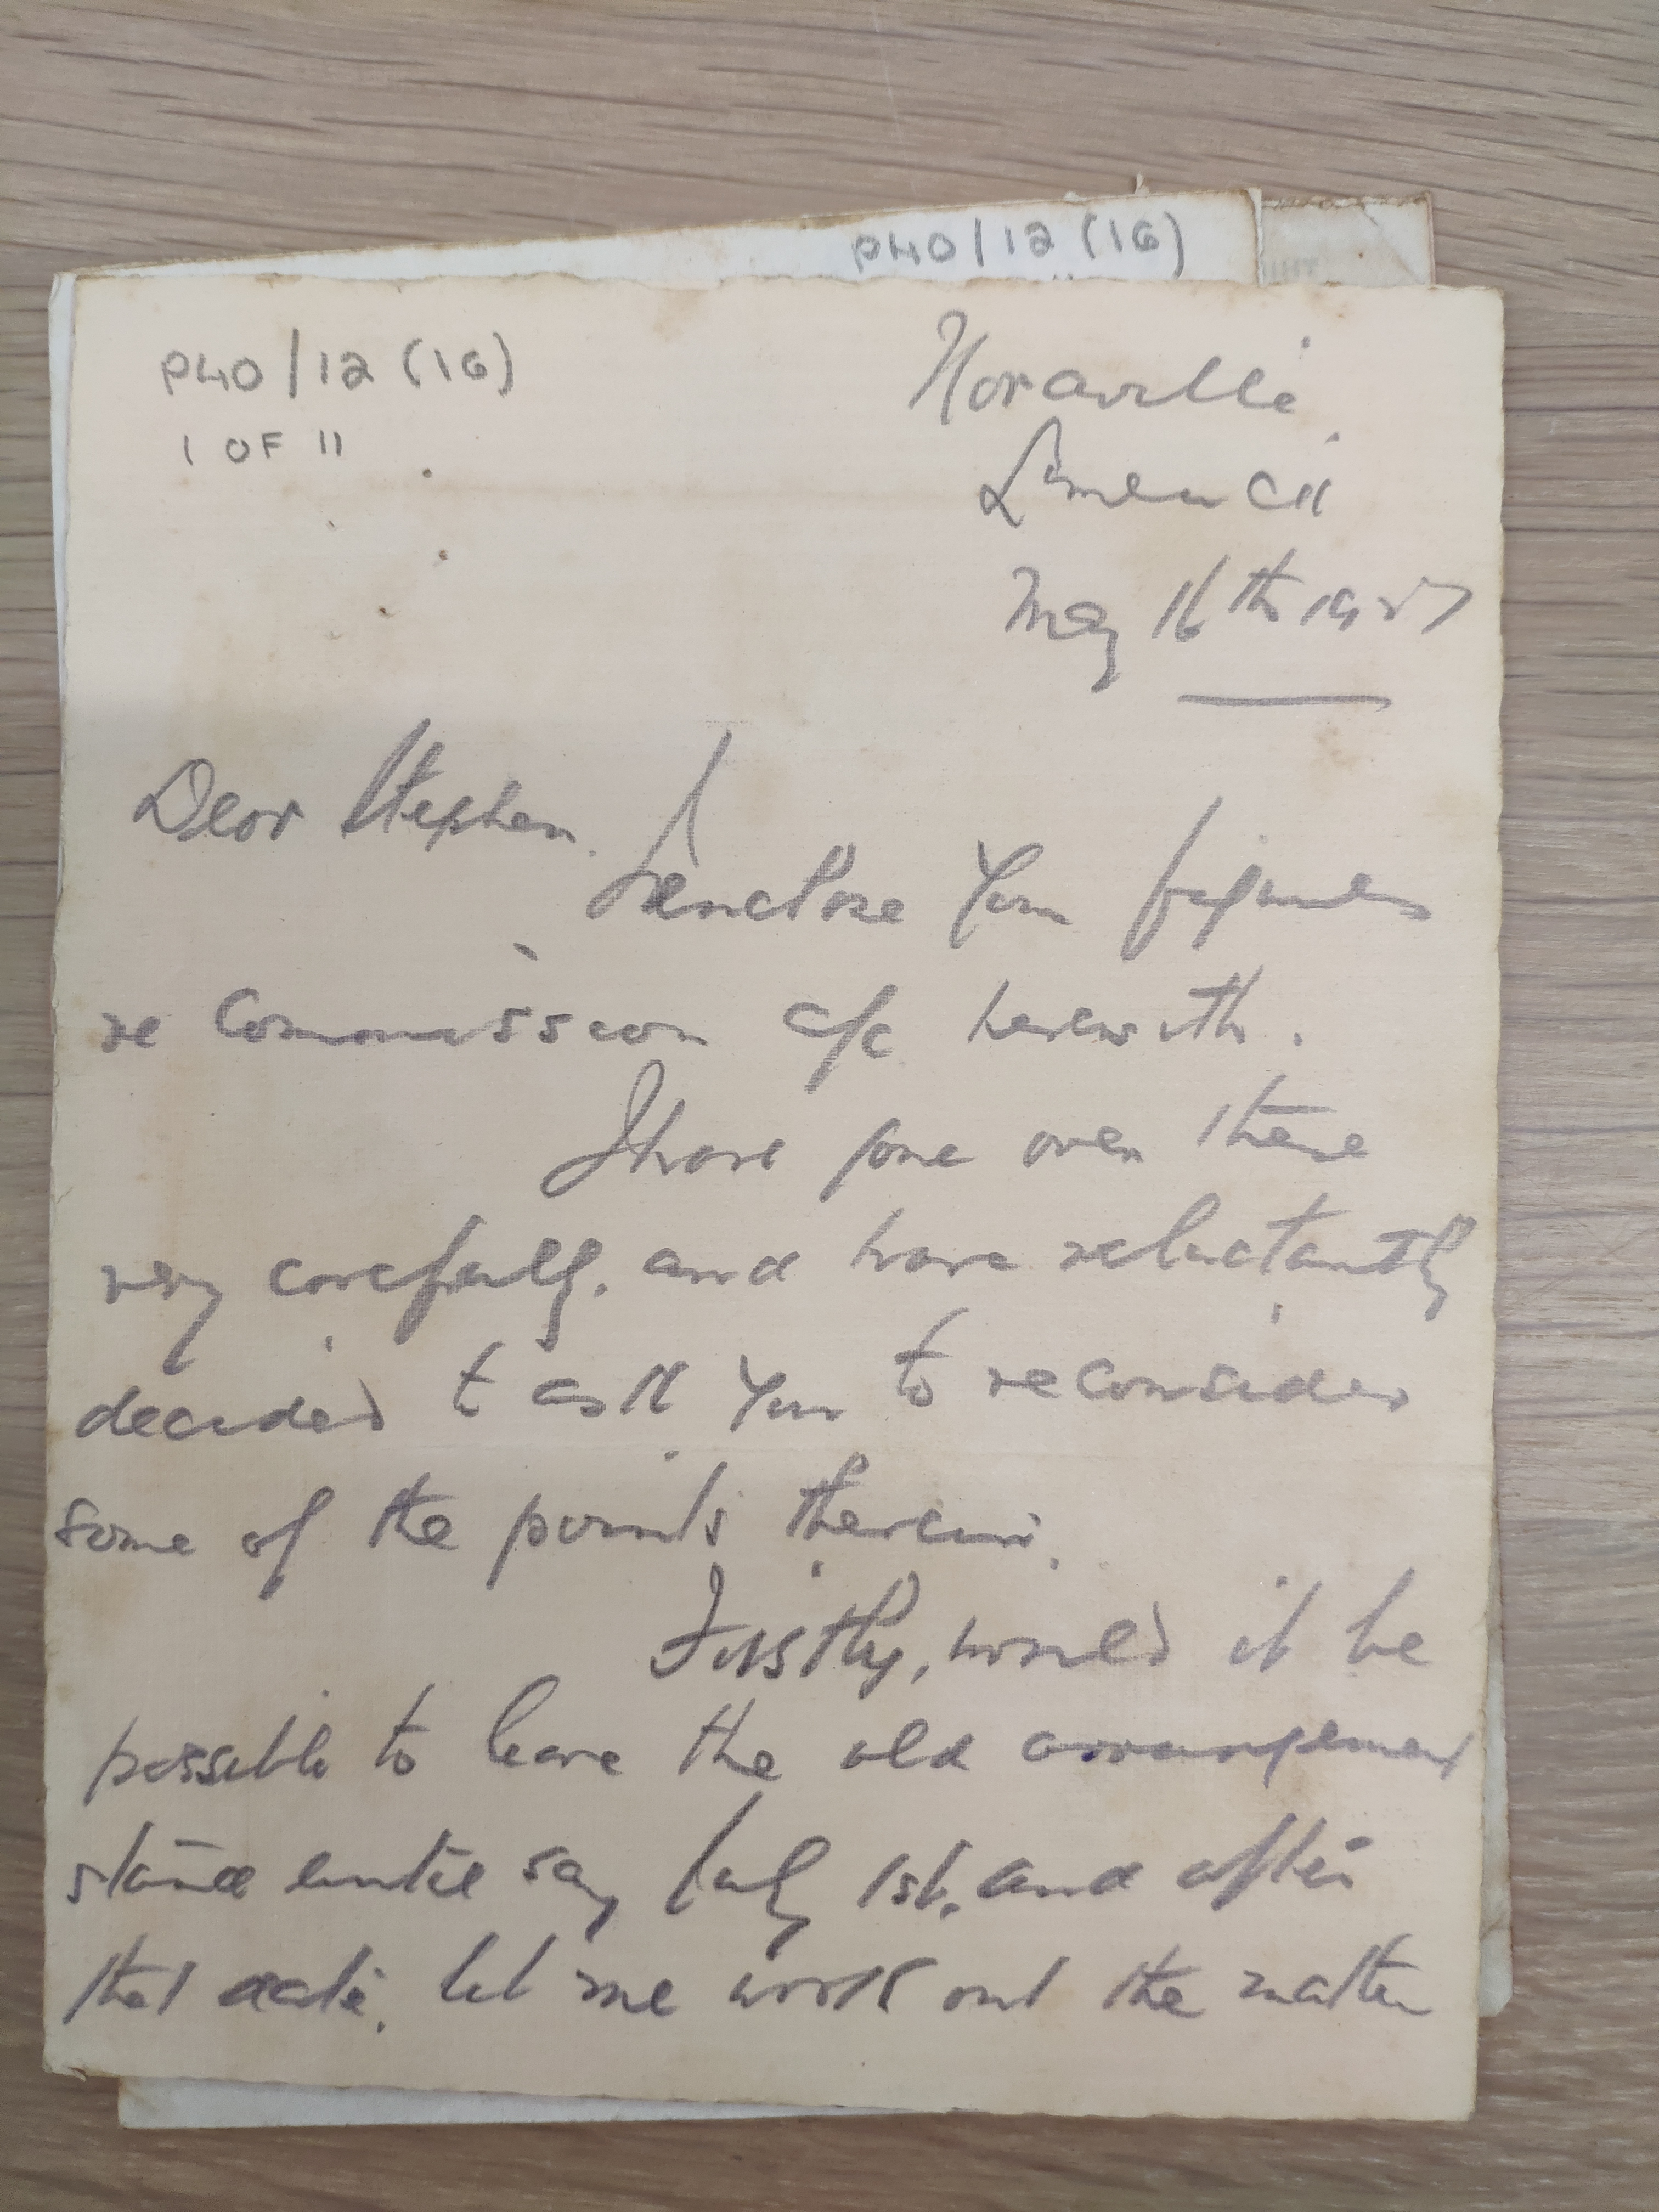 P40/12 (16)
P40/12 (16)
1 OF 11
Noraville
Limerick
May 16th 1927
Dear Stephen.
I enclose your figures
re Commission a/c herewith.
I have gone over these
very carefully, and have reluctantly
decided to ask you to reconsider
some of the points therein.
Firstly, would it be
possible to leave the old arrangement
stand until say July 1st, and after
that date, let me work out the matter